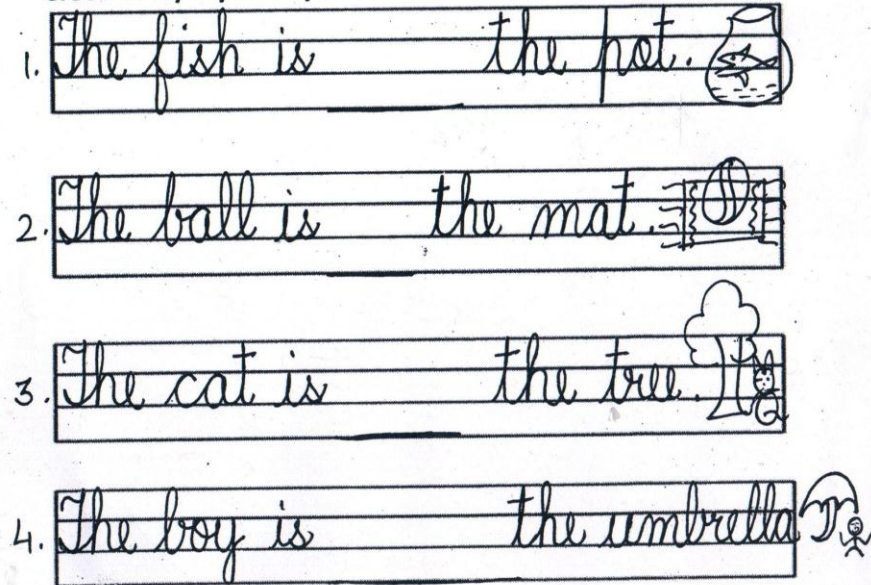 1. The fish is ______ the pot.
2. The ball is ______ the mat.
3. The cat is ______ the tree.
4. The boy is ______ the umbrella